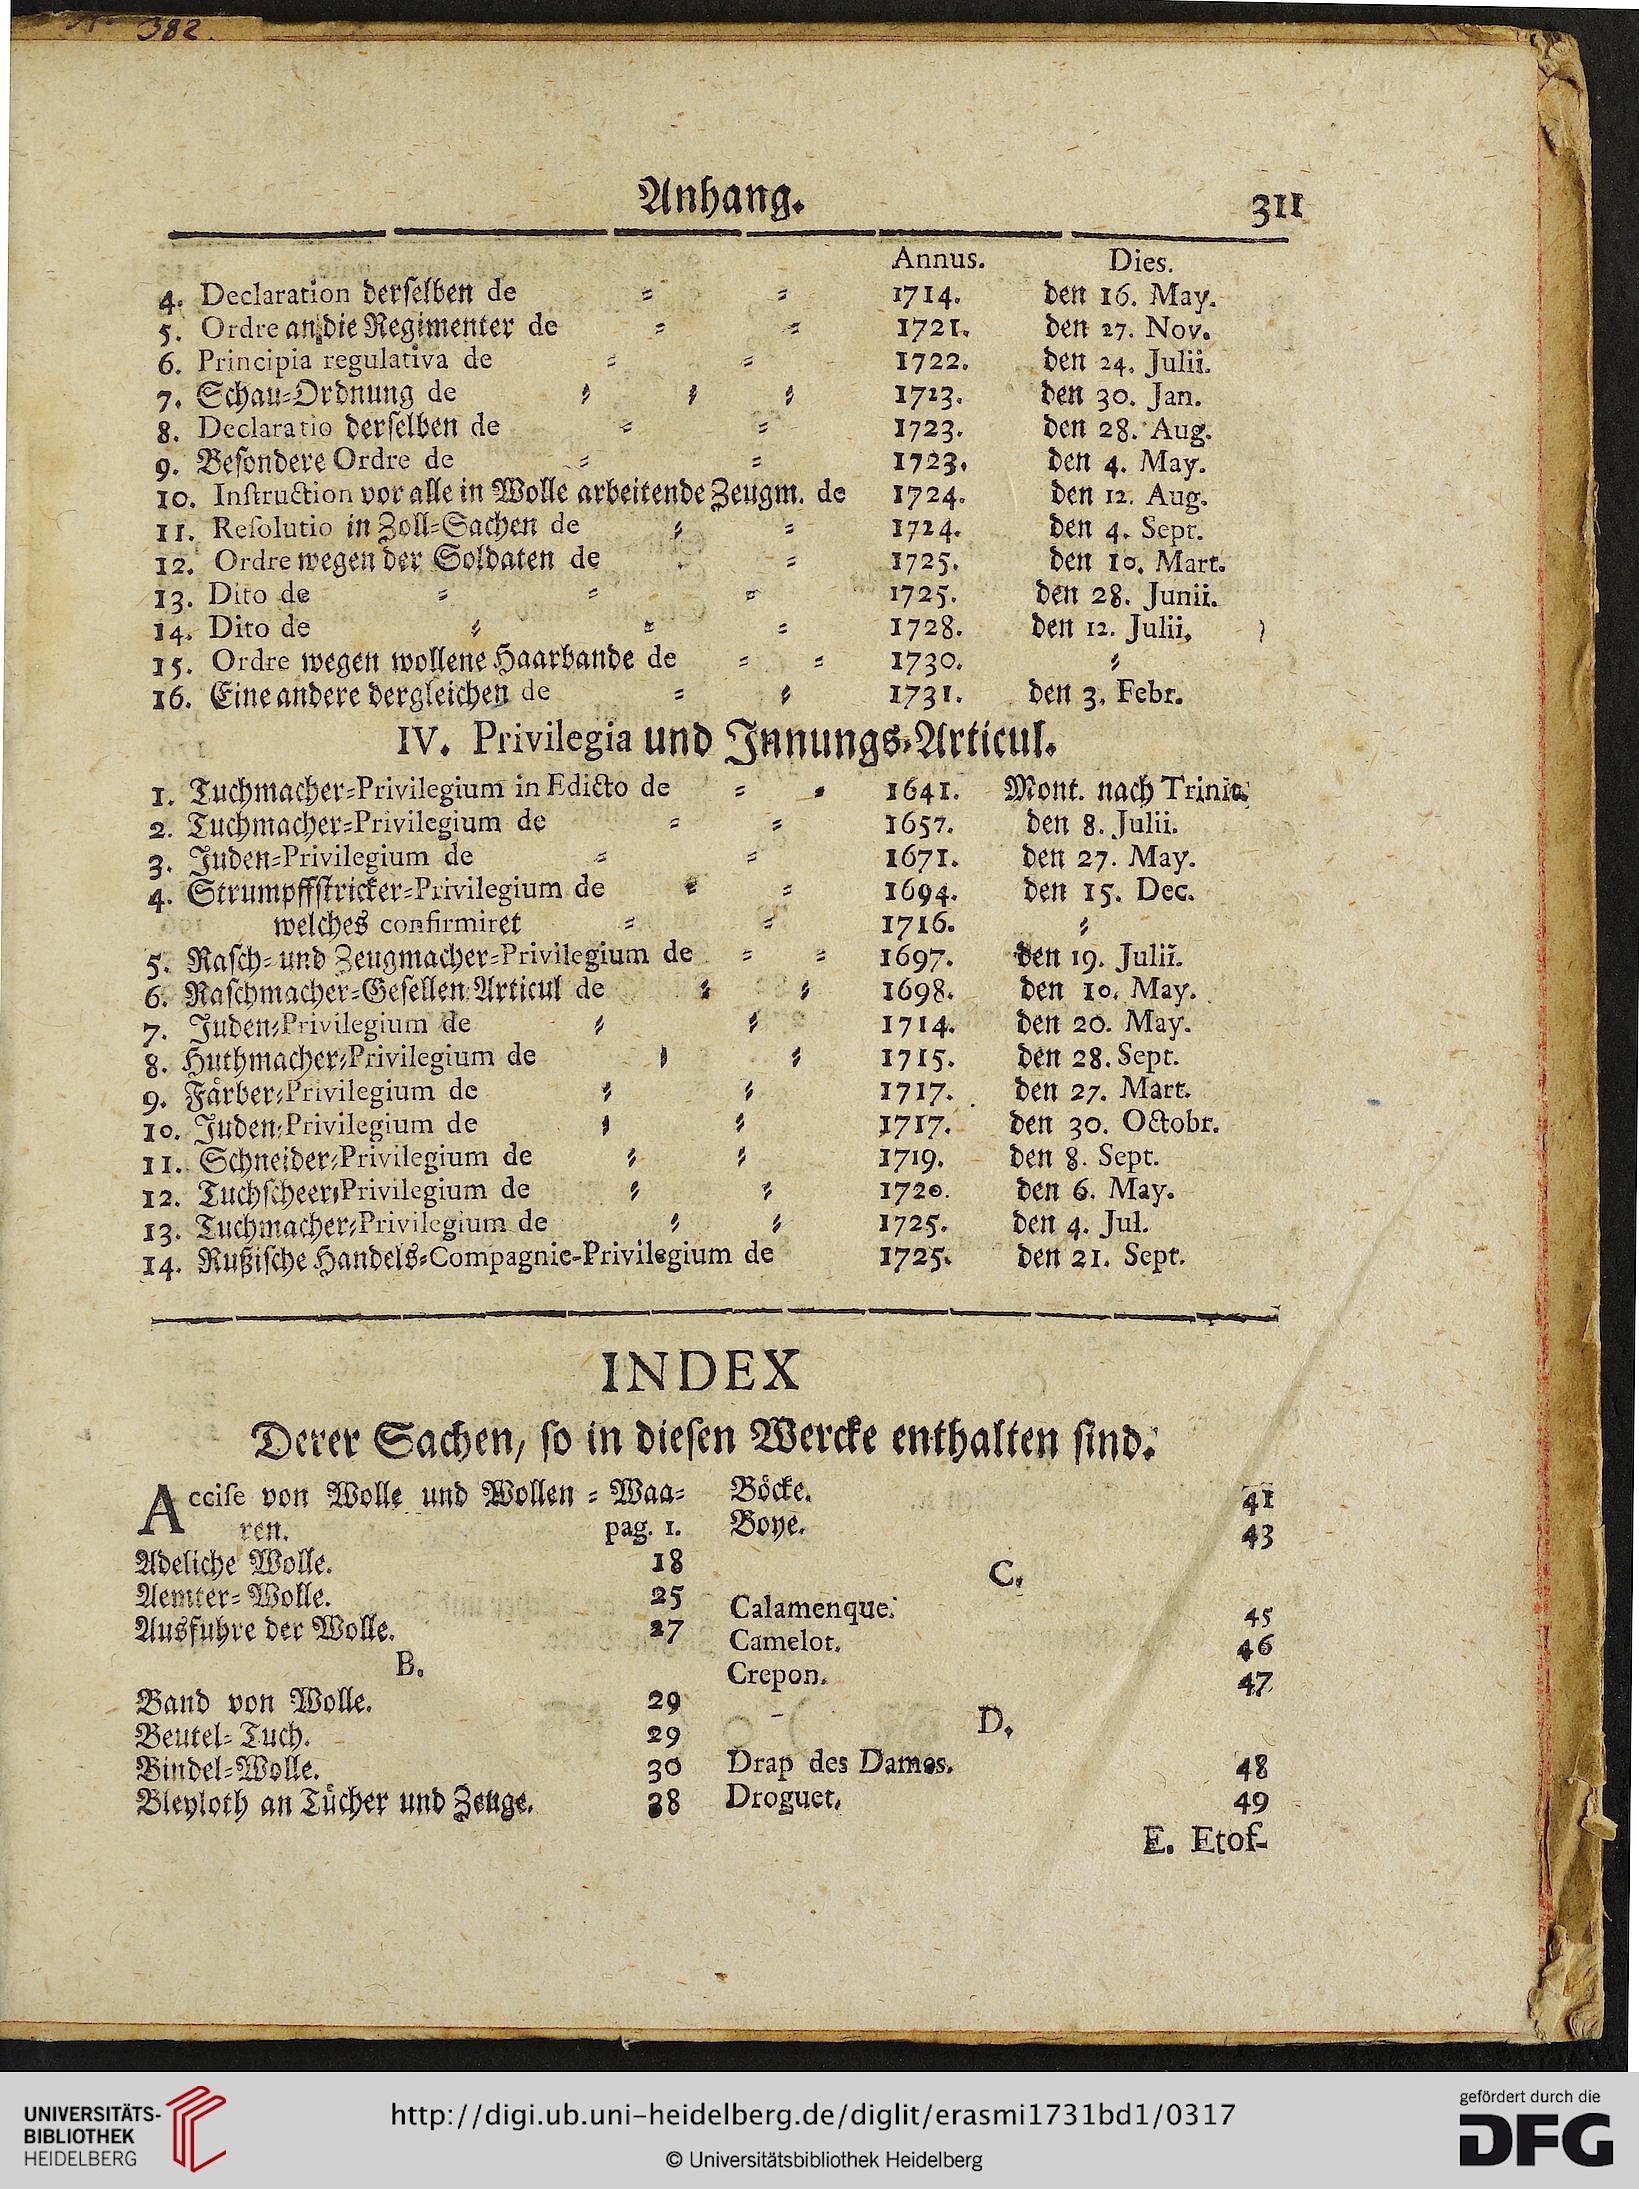 382.
Anhang. 311
Annus. Dies.
4. Declaration derſelben de = = 1714. den 16. May.
5. Ordre an die Regimenter de = = 1721. den 27. Nov.
6. Principia regulativa de = = 1722. den 24. Julii.
7. Schau=Ordnung de = = = 1723. den 30. Jan.
8. Declaratio derſelben de = = 1723. den 28. Aug.
9. Beſondere Ordre de = = 1723. den 4. May.
10. Inſtruction vor alle in Wolle arbeitende Zeugm. de 1724. den 12. Aug.
11. Reſolutio in Zoll=Sachen de = = 1724. den 4. Sept.
12. Ordre wegen der Soldaten de = 1725. den 10. Mart.
13. Dito de = = = 1725. den 28. Junii.
14. Dito de = = = 1728. den 12. Julii,
15. Ordre wegen wollene Haarbande de = = 1730. =
16. Eine andere dergleichen de = = 1731. den 3. Febr.
IV. Privilegia und Innungs=Articul.
1. Tuchmacher=Privilegium in Edicto de = = 1641. Mont. nach Trinit.
2. Tuchmacher=Privilegium de = = 1657. den 8. Julii.
3. Juden=Privilegium de = = 1671. den 27. May.
4. Strumpffſtricker=Privilegium de = = 1694. den 15. Dec.
welches confirmiret = = 1716. =
5. Raſch= und Zeugmacher=Privilegium de = = 1697. den 19. Julii.
6. Raſchmacher=Geſellen=Articul de = = 1698. den 10. May.
7. Juden=Privilegium de = = 1714. den 20. May.
8. Huthmacher=Privilegium de = = 1715. den 28. Sept.
9. Färber=Privilegium de = = 1717. den 27. Mart.
10. Juden=Privilegium de = = 1717. den 30. Octobr.
11. Schneider=Privilegium de = = 1719. den 8. Sept.
12. Tuchſcheer=Privilegium de = = 1720. den 6. May.
13. Tuchmacher=Privilegium de = = 1725. den 4. Jul.
14. Rußiſche Handels=Compagnie-Privilegium de 1725. den 21. Sept.
INDEX
Derer Sachen, ſo in dieſen Wercke enthalten ſind.
Acciſe von Wolle und Wollen=Waa=
ren. pag. 1.
Adeliche Wolle. 18
Aemter=Wolle. 25
Ausfuhre der Wolle. 27
B.
Band von Wolle. 29
Beutel=Tuch. 29
Bindel=Wolle. 30
Bleyloth an Tücher und Zeuge. 38
Böcke. 41
Boye. 43
C.
Calamenque. 45
Camelot. 46
Crepon. 47
D.
Drap des Dames. 48
Droguet. 49
E. Etof-
UNIVERSITÄTS-
BIBLIOTHEK
HEIDELBERG
http://digi.ub.uni-heidelberg.de/diglit/erasmi1731bd1/0317
© Universitätsbibliothek Heidelberg
gefördert durch die
DFG